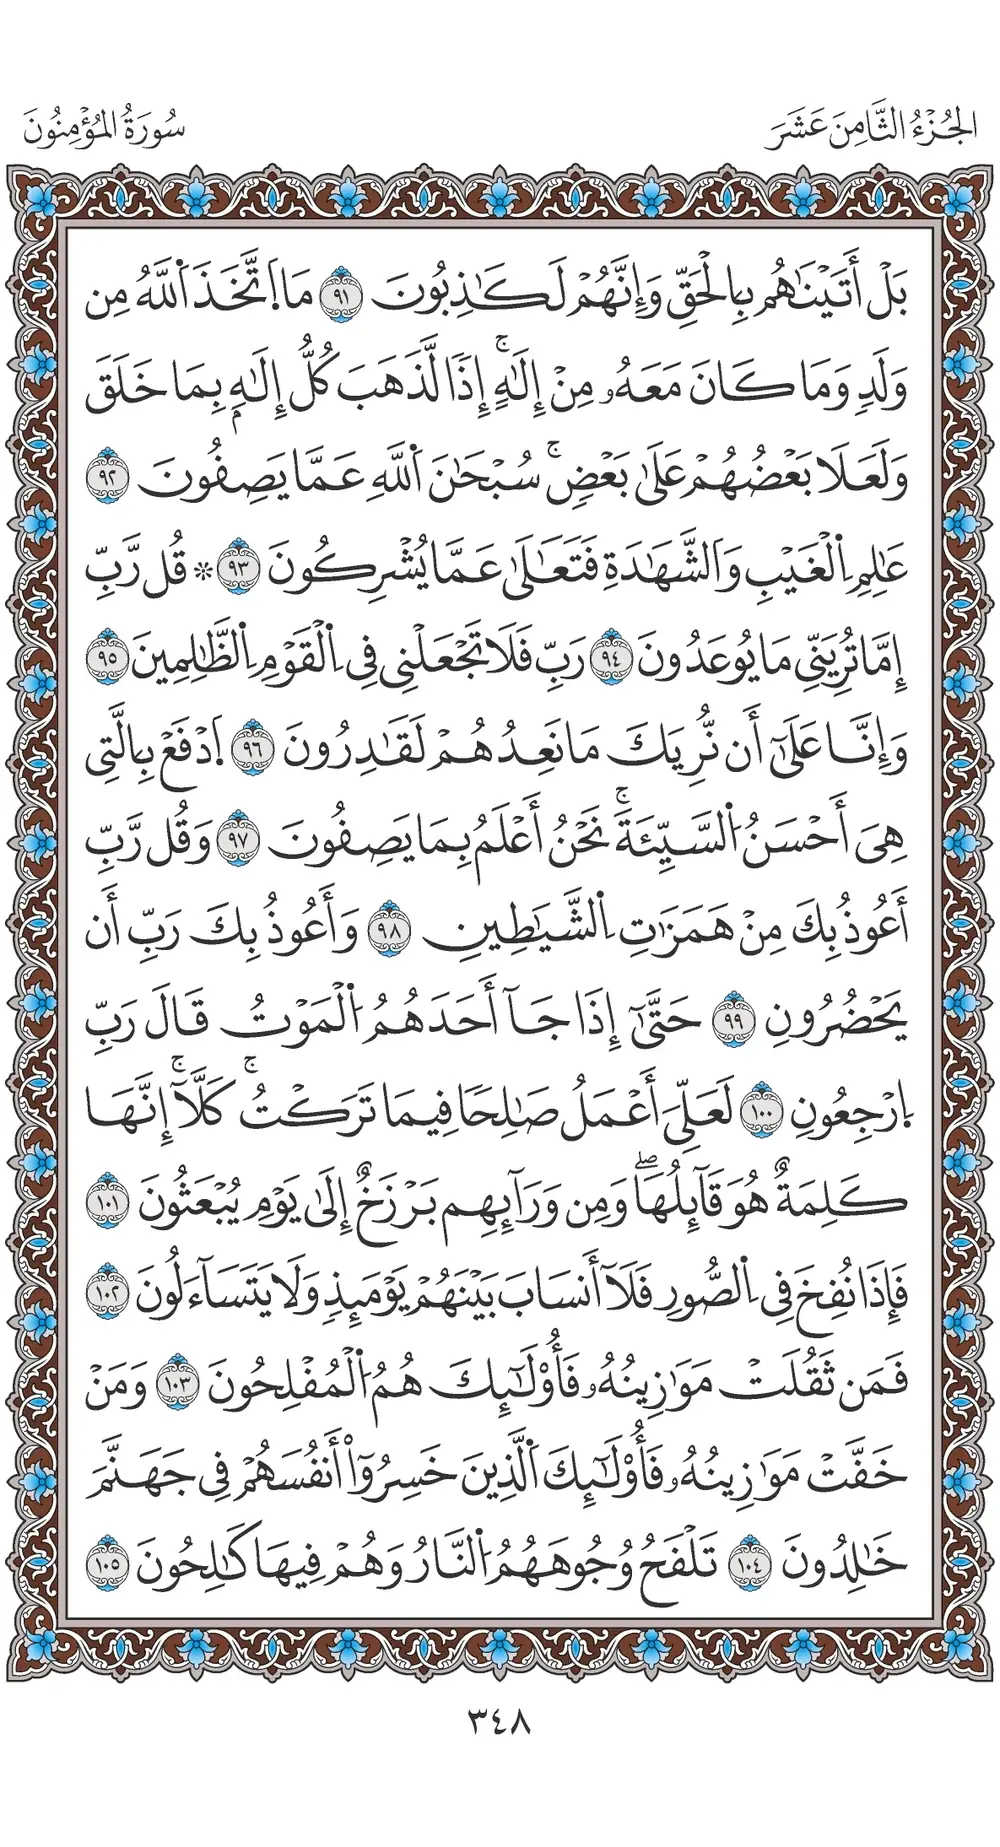 الجُزْءُ الثَّامِنَ عَشَرَ
سُورَةُ المُؤْمِنُونَ
بَلْ أَتَيْنَاهُم بِالْحَقِّ وَإِنَّهُمْ لَكَٰذِبُونَ ٩١ مَا اَتَّخَذَ اَللَّهُ مِن
وَلَدٍ وَمَا كَانَ مَعَهُۥ مِنْ إِلَٰهٍۚ إِذٗا لَّذَهَبَ كُلُّ إِلَٰهِۭ بِمَا خَلَقَ
وَلَعَلَا بَعْضُهُمْ عَلَىٰ بَعْضٖۚ سُبْحَٰنَ اَللَّهِ عَمَّا يَصِفُونَ ٩٢
عَٰلِمِ اِلْغَيْبِ وَالشَّهَٰدَةِ فَتَعَٰلَىٰ عَمَّا يُشْرِكُونَ ٩٣ * قُل رَّبِّ
إِمَّا تُرِيَنِّي مَا يُوعَدُونَ ٩٤ رَبِّ فَلَا تَجْعَلْنِي فِي اِلْقَوْمِ اِلظَّٰلِمِينَ ٩٥
وَإِنَّا عَلَىٰٓ أَن نُّرِيَكَ مَا نَعِدُهُمْ لَقَٰدِرُونَ ٩٦ اَدْفَعْ بِالَّتِي
هِيَ أَحْسَنُ اُلسَّيِّئَةَۚ نَحْنُ أَعْلَمُ بِمَا يَصِفُونَ ٩٧ وَقُل رَّبِّ
أَعُوذُ بِكَ مِنْ هَمَزَٰتِ اِلشَّيَٰطِينِ ٩٨ وَأَعُوذُ بِكَ رَبِّ أَن
يَحْضُرُونِ ٩٩ حَتَّىٰٓ إِذَا جَآ أَحَدَهُمُ اُلْمَوْتُ قَالَ رَبِّ
اِرْجِعُونِ ١٠٠ لَعَلِّيَ أَعْمَلُ صَٰلِحٗا فِيمَا تَرَكْتُۚ كَلَّآۚ إِنَّهَا
كَلِمَةٌ هُوَ قَآئِلُهَاۖ وَمِن وَرَآئِهِم بَرْزَخٌ إِلَىٰ يَوْمِ يُبْعَثُونَ ١٠١
فَإِذَا نُفِخَ فِي اِلصُّورِ فَلَآ أَنسَابَ بَيْنَهُمْ يَوْمَئِذٖ وَلَا يَتَسَآءَلُونَ ١٠٢
فَمَن ثَقُلَتْ مَوَٰزِينُهُۥ فَأُوْلَٰٓئِكَ هُمُ اُلْمُفْلِحُونَ ١٠٣ وَمَنْ
خَفَّتْ مَوَٰزِينُهُۥ فَأُوْلَٰٓئِكَ اَلَّذِينَ خَسِرُوٓاْ أَنفُسَهُمْ فِي جَهَنَّمَ
خَٰلِدُونَ ١٠٤ تَلْفَحُ وُجُوهَهُمُ اُلنَّارُ وَهُمْ فِيهَا كَٰلِحُونَ ١٠٥
٣٤٨